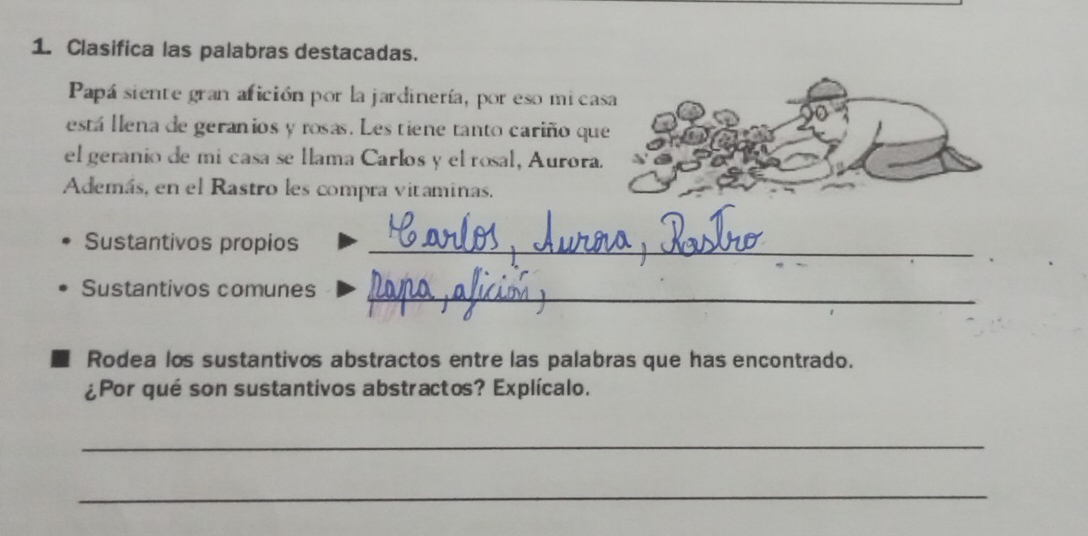 1. Clasifica las palabras destacadas.
Papá siente gran afición por la jardinería, por eso mi casa
está llena de geranios y rosas. Les tiene tanto cariño que
el geranio de mi casa se llama Carlos y el rosal, Aurora.
Además, en el Rastro les compra vitaminas.
• Sustantivos propios ► Carlos, Aurora, Rastro
• Sustantivos comunes ► papa, afición,
■ Rodea los sustantivos abstractos entre las palabras que has encontrado.
¿Por qué son sustantivos abstractos? Explícalo.